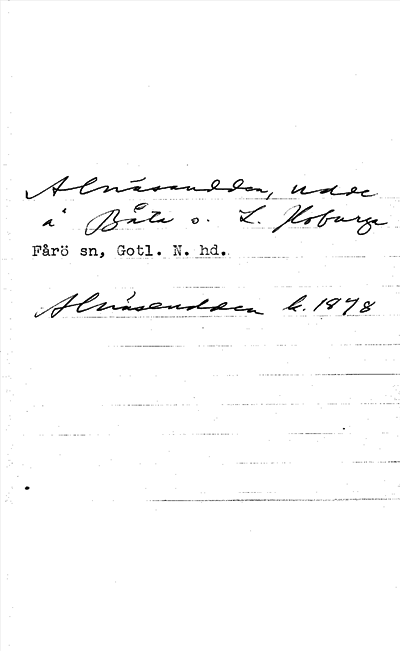 Alnäsaudden, udde
å Båta o. L. Hoburga
Fårö sn, Gotl. N. hd.
Alnäsendden k. 1878